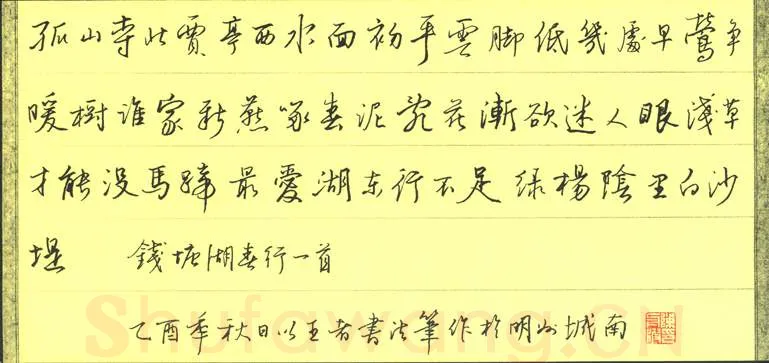 孤山寺北賈亭西水面初平雲脚低幾處早鶯争
暖樹谁家新燕啄春泥亂花漸欲迷人眼淺草
才能没馬蹄最愛湖东行不足绿楊陰里白沙
堤 錢塘湖春行一首
乙酉年秋日以王者書法筆作於明山城南
Shufawang.cn